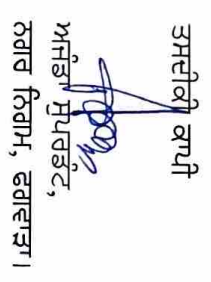 ਤਸਦੀਕੀ ਕਾਪੀ
ਸੁਪਰਡੰਟ,
ਨਗਰ ਨਿਗਮ, ਫਗਵਾੜਾ।